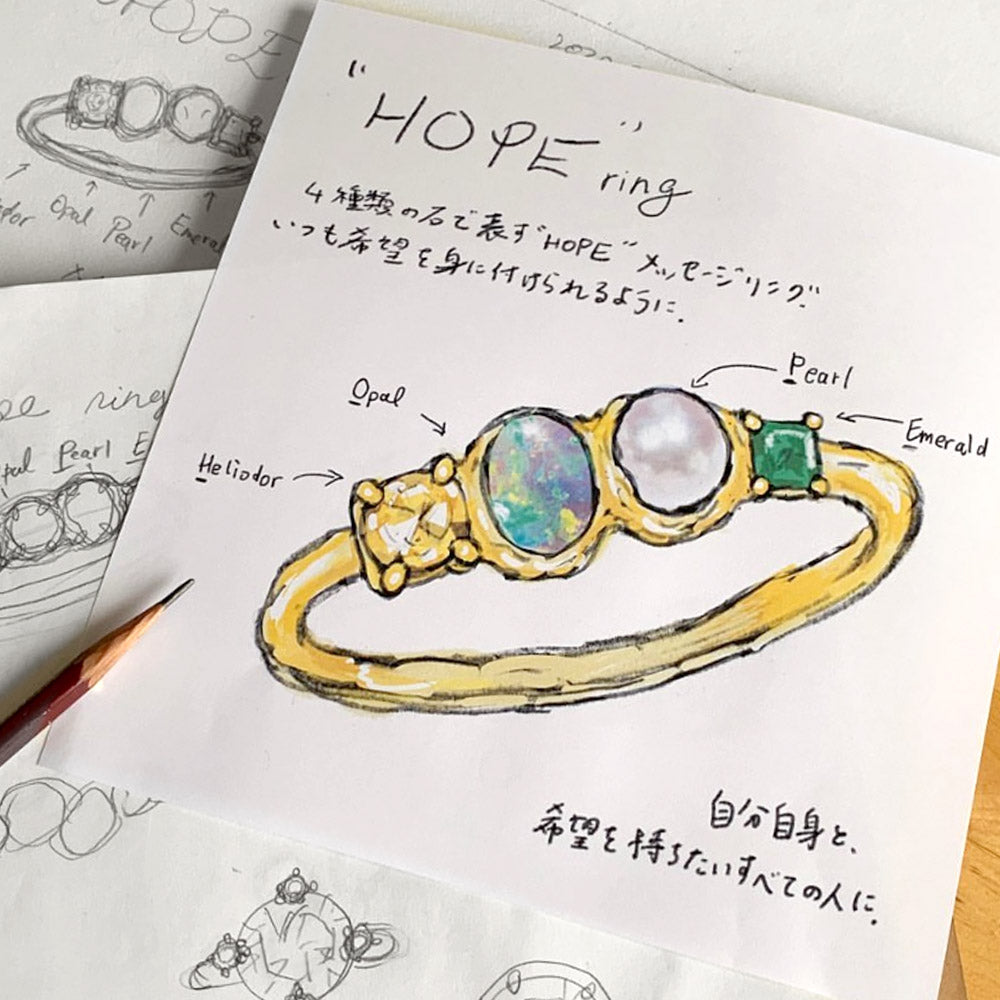 HOPE
Opal
Pearl
ring
Pearl
"HOPE" ring
4種類の石で表す"HOPE"メッセージリング"
いつも希望を身に付けられるように.
Pearl
Opal
Emerald
Heliodor
自分自身と、
希望を持ちたいすべての人に.